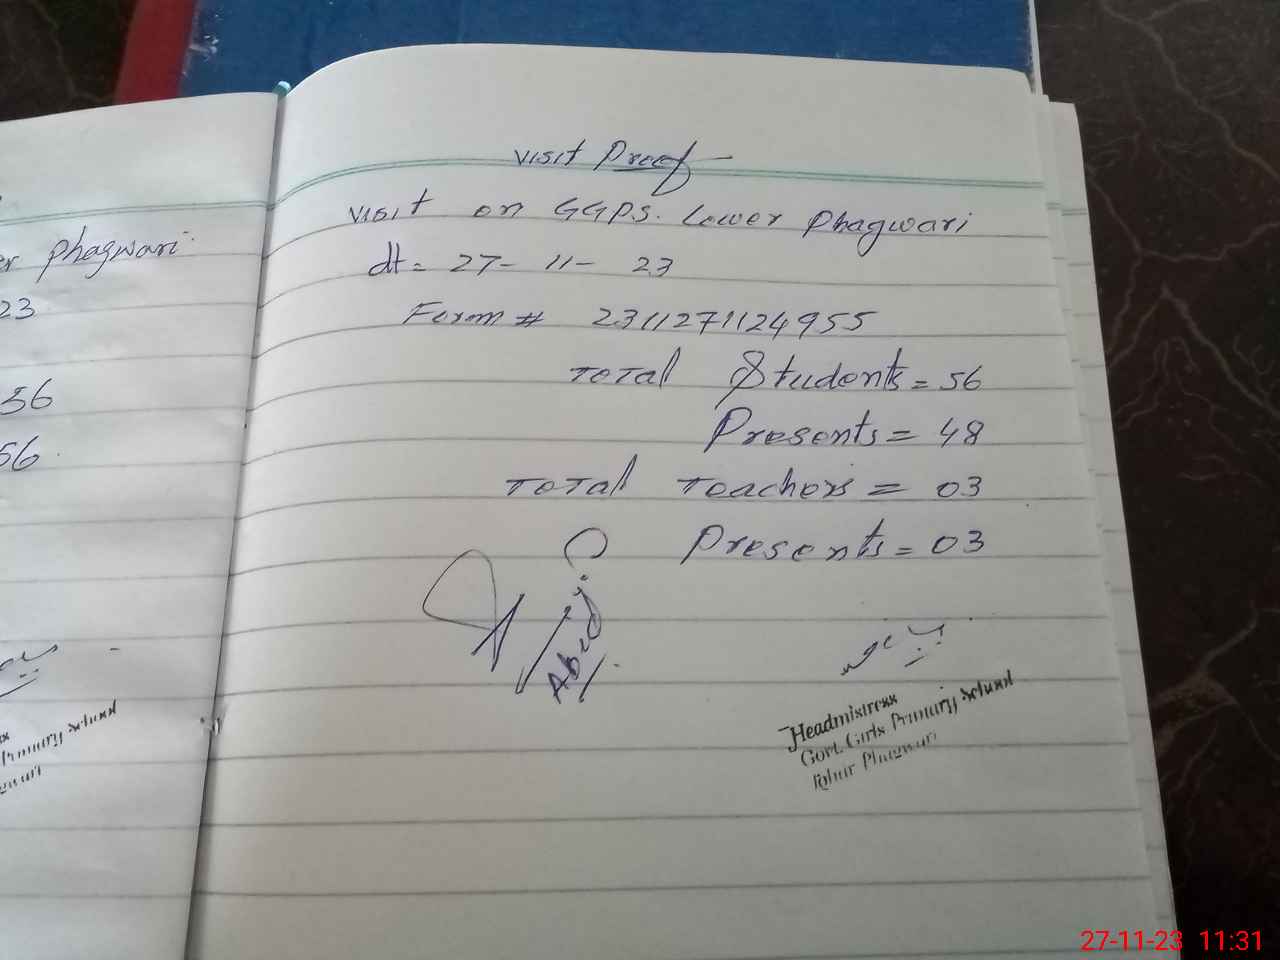 er Phagwari
23
56
56
Visit Proof
visit on GGPS. Lower Phagwari
dt= 27- 11- 23
Form # 2311271124955
Total Students = 56
Presents = 48
Total Teachers = 03
Presents = 03
Abid
Headmistress
Govt. Girls Primary School
Phagwari
27-11-23 11:31